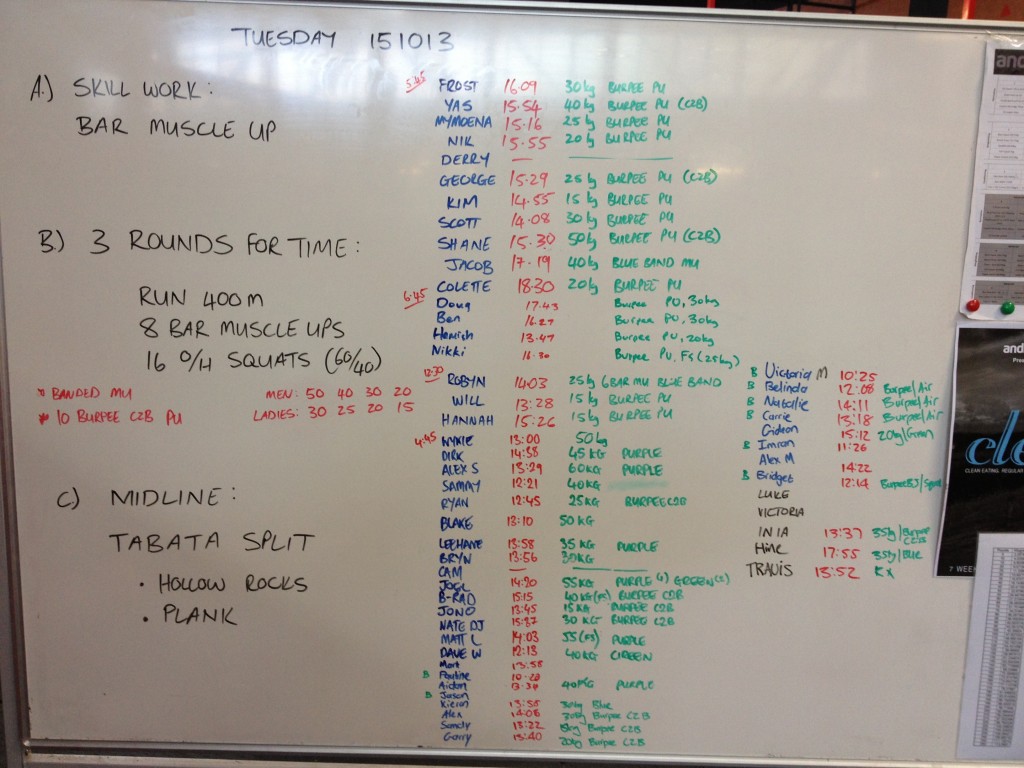 TUESDAY 151013
A.) SKILL WORK:
BAR MUSCLE UP
B.) 3 ROUNDS FOR TIME:
RUN 400m
8 BAR MUSCLE UPS
16 O/H SQUATS (60/40)
* BANDED MU MEN: 50 40 30 20
* 10 BURPEE C2B PU LADIES: 30 25 20 15
C) MIDLINE:
TABATA SPLIT
• HOLLOW ROCKS
• PLANK
5:45 FROST 16.09 30kg BURPEE PU
YAS 15.54 40kg BURPEE PU (C2B)
MYMOENA 15.16 25kg BURPEE PU
NIK 15.55 20kg BURPEE PU
DERRY —
GEORGE 15.29 25kg BURPEE PU (C2B)
KIM 14.55 15kg BURPEE PU
SCOTT 14.08 30kg BURPEE PU
SHANE 15.30 50kg BURPEE PU (C2B)
JACOB 17.19 40kg BLUE BAND MU
COLETTE 18.30 20kg BURPEE PU
6.45 Doug 17.43 Burpee PU, 30kg
Ben 16.27 Burpee PU, 30kg
Hamish 13.47 Burpee PU, 20kg
Nikki 16.30 Burpee PU, FS (25kg)
12:30 ROBYN 14:03 25kg 6 BAR MU BLUE BAND
WILL 13:28 15kg BURPEE PU
HANNAH 15:26 15kg BURPEE PU
4:45 WYKIE 13:00 50kg
DIRK 14:58 45KG PURPLE
ALEX S 13:29 60KG PURPLE
SAMMY 12:21 40KG
RYAN 12:45 25KG BURPEE C2B
BLAKE 13:10 50KG
LEEHANE 13:58 35KG PURPLE
BRYN 13:56 30KG
CAM —
JOEL 14:20 55KG PURPLE GREEN
B-RAD 15:15 40KG (FS) BURPEE C2B
JONO 13:45 15KG BURPEE C2B
NATE DJ 15:27 30KG BURPEE C2B
MATT L 14:03 55 (FS) PURPLE
DAVE W 12:13 40KG GREEN
Mart 13:58
B Pauline
Aidan 13:34 40KG PURPLE
B Jason
Kieran 13:55 30kg Blue
Alex 14:08 30kg Burpee C2B
Sandy 13:22 Burpee C2B
Garry 15:40 20kg Burpee C2B
B Victoria M 10:25
B Belinda 12:08 Burpee/Air
B Natalie 14:11 Burpee/Air
B Carrie 13:18 Burpee/Air
Gideon 15:12 20kg/Green
B Imran 11:26
Alex M 14:22
B Bridget 12:14
LUKE
VICTORIA
INIA 13:37 35kg/Burpee C2B
Hine 17:55 35kg/Blue
TRAVIS 13:52 Rx
and
and
cle
CLEAN EATING. REGULAR
7 WEEK